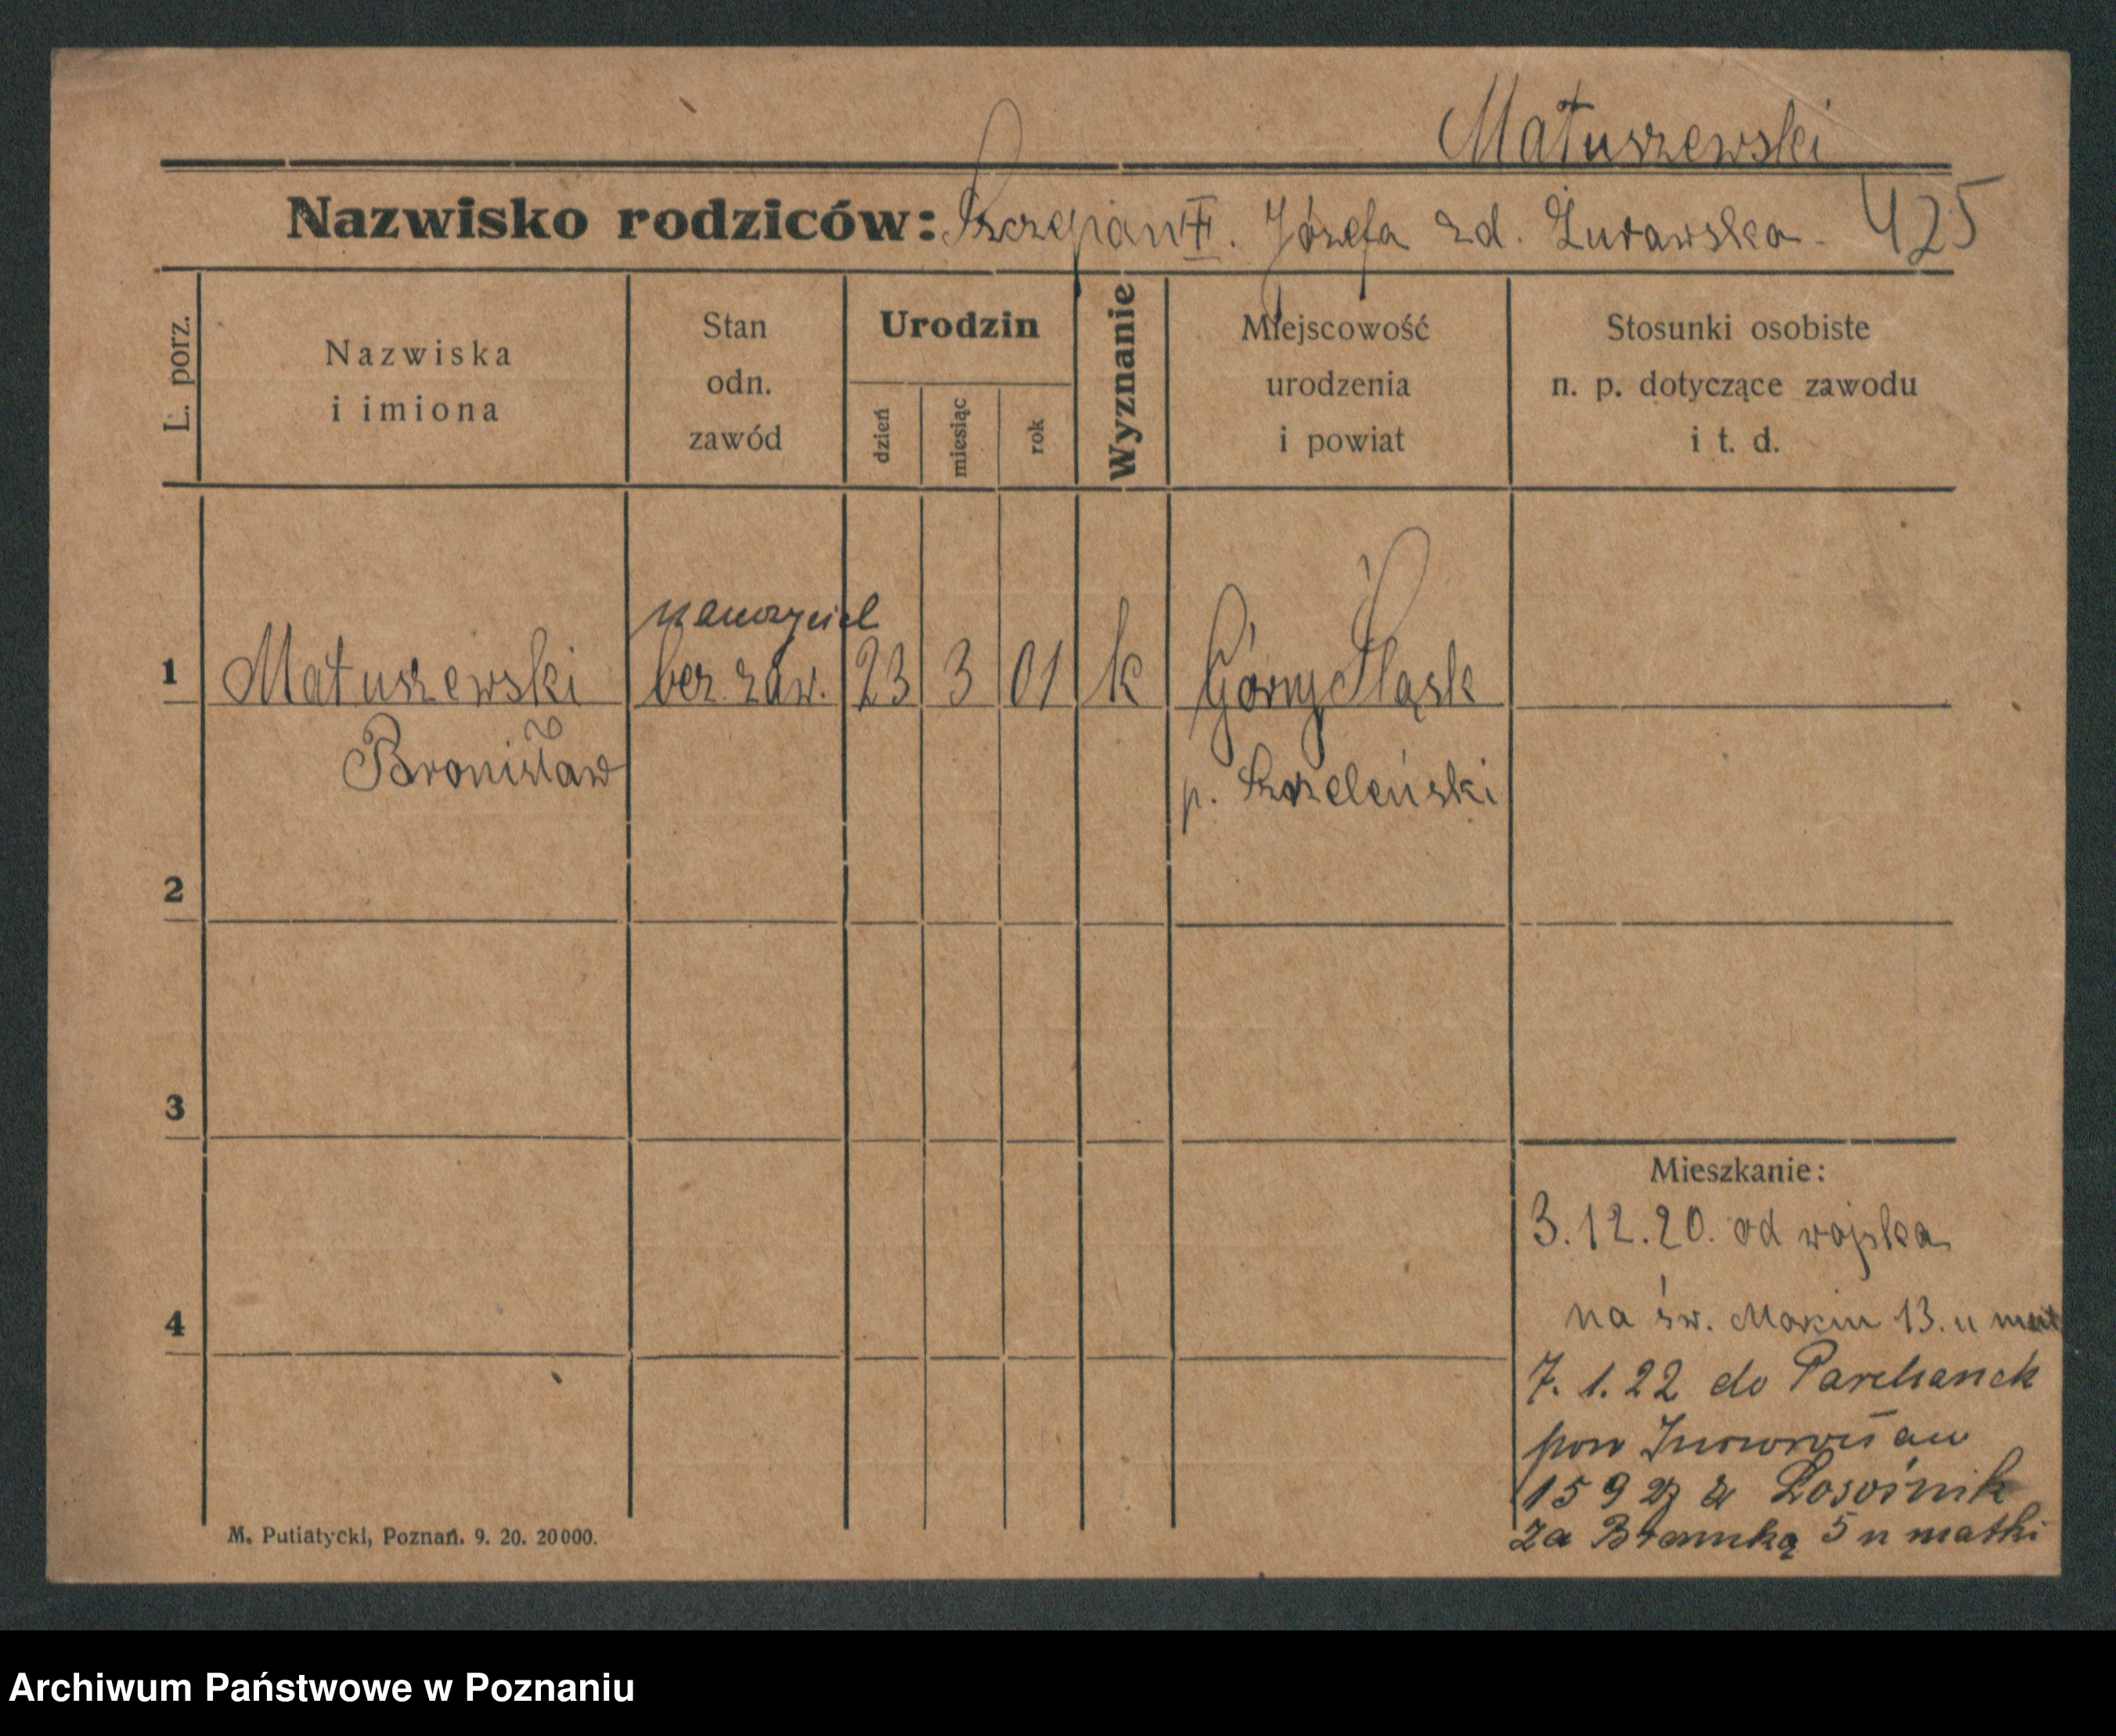 Matuszewski
Nazwisko rodziców: Szczepan II. Józefa zd. Żurawska 425
L. porz.
Nazwiska
i imiona
Stan
odn.
zawód
Urodzin
dzień
miesiąc
rok
Wyznanie
Miejscowość
urodzenia
i powiat
Stosunki osobiste
n. p. dotyczące zawodu
i t. d.
nauczyciel
1 Matuszewski bez zaw. 23 3 01 k Górny Śląsk
Bronisław p.
2
3
4
Mieszkanie:
3.12.20. od wojska
na św. Marcin 13. u
7. 1. 22 do Parchanek
pow Inowrocław
15 9 23 z
za Bramką 5 u matki
M. Putiatycki, Poznań. 9. 20. 20000.
Archiwum Państwowe w Poznaniu